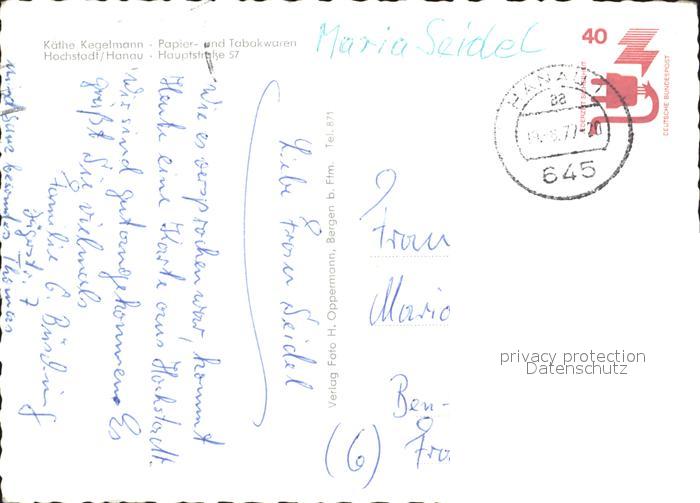 Käthe Kegelmann · Papier- und Tabakwaren
Hochstadt/Hanau · Hauptstraße 57
Maria Seidel
40
JEDERZEIT SICHERHEIT
DEUTSCHE BUNDESPOST
HANAU 1
aa
77-20
645
Liebe Frau Seidel
Wie es versprochen war, kommt
Heute eine Karte aus Hochstadt.
Wir sind gut angekommen. Es
grüßt Sie vielmals
Familie G. Büsching
7
Thomas
Verlag Foto H. Oppermann, Bergen b. Ffm. Tel. 871
Frau
Maria
Ben-
(6) Fra
privacy protection
Datenschutz